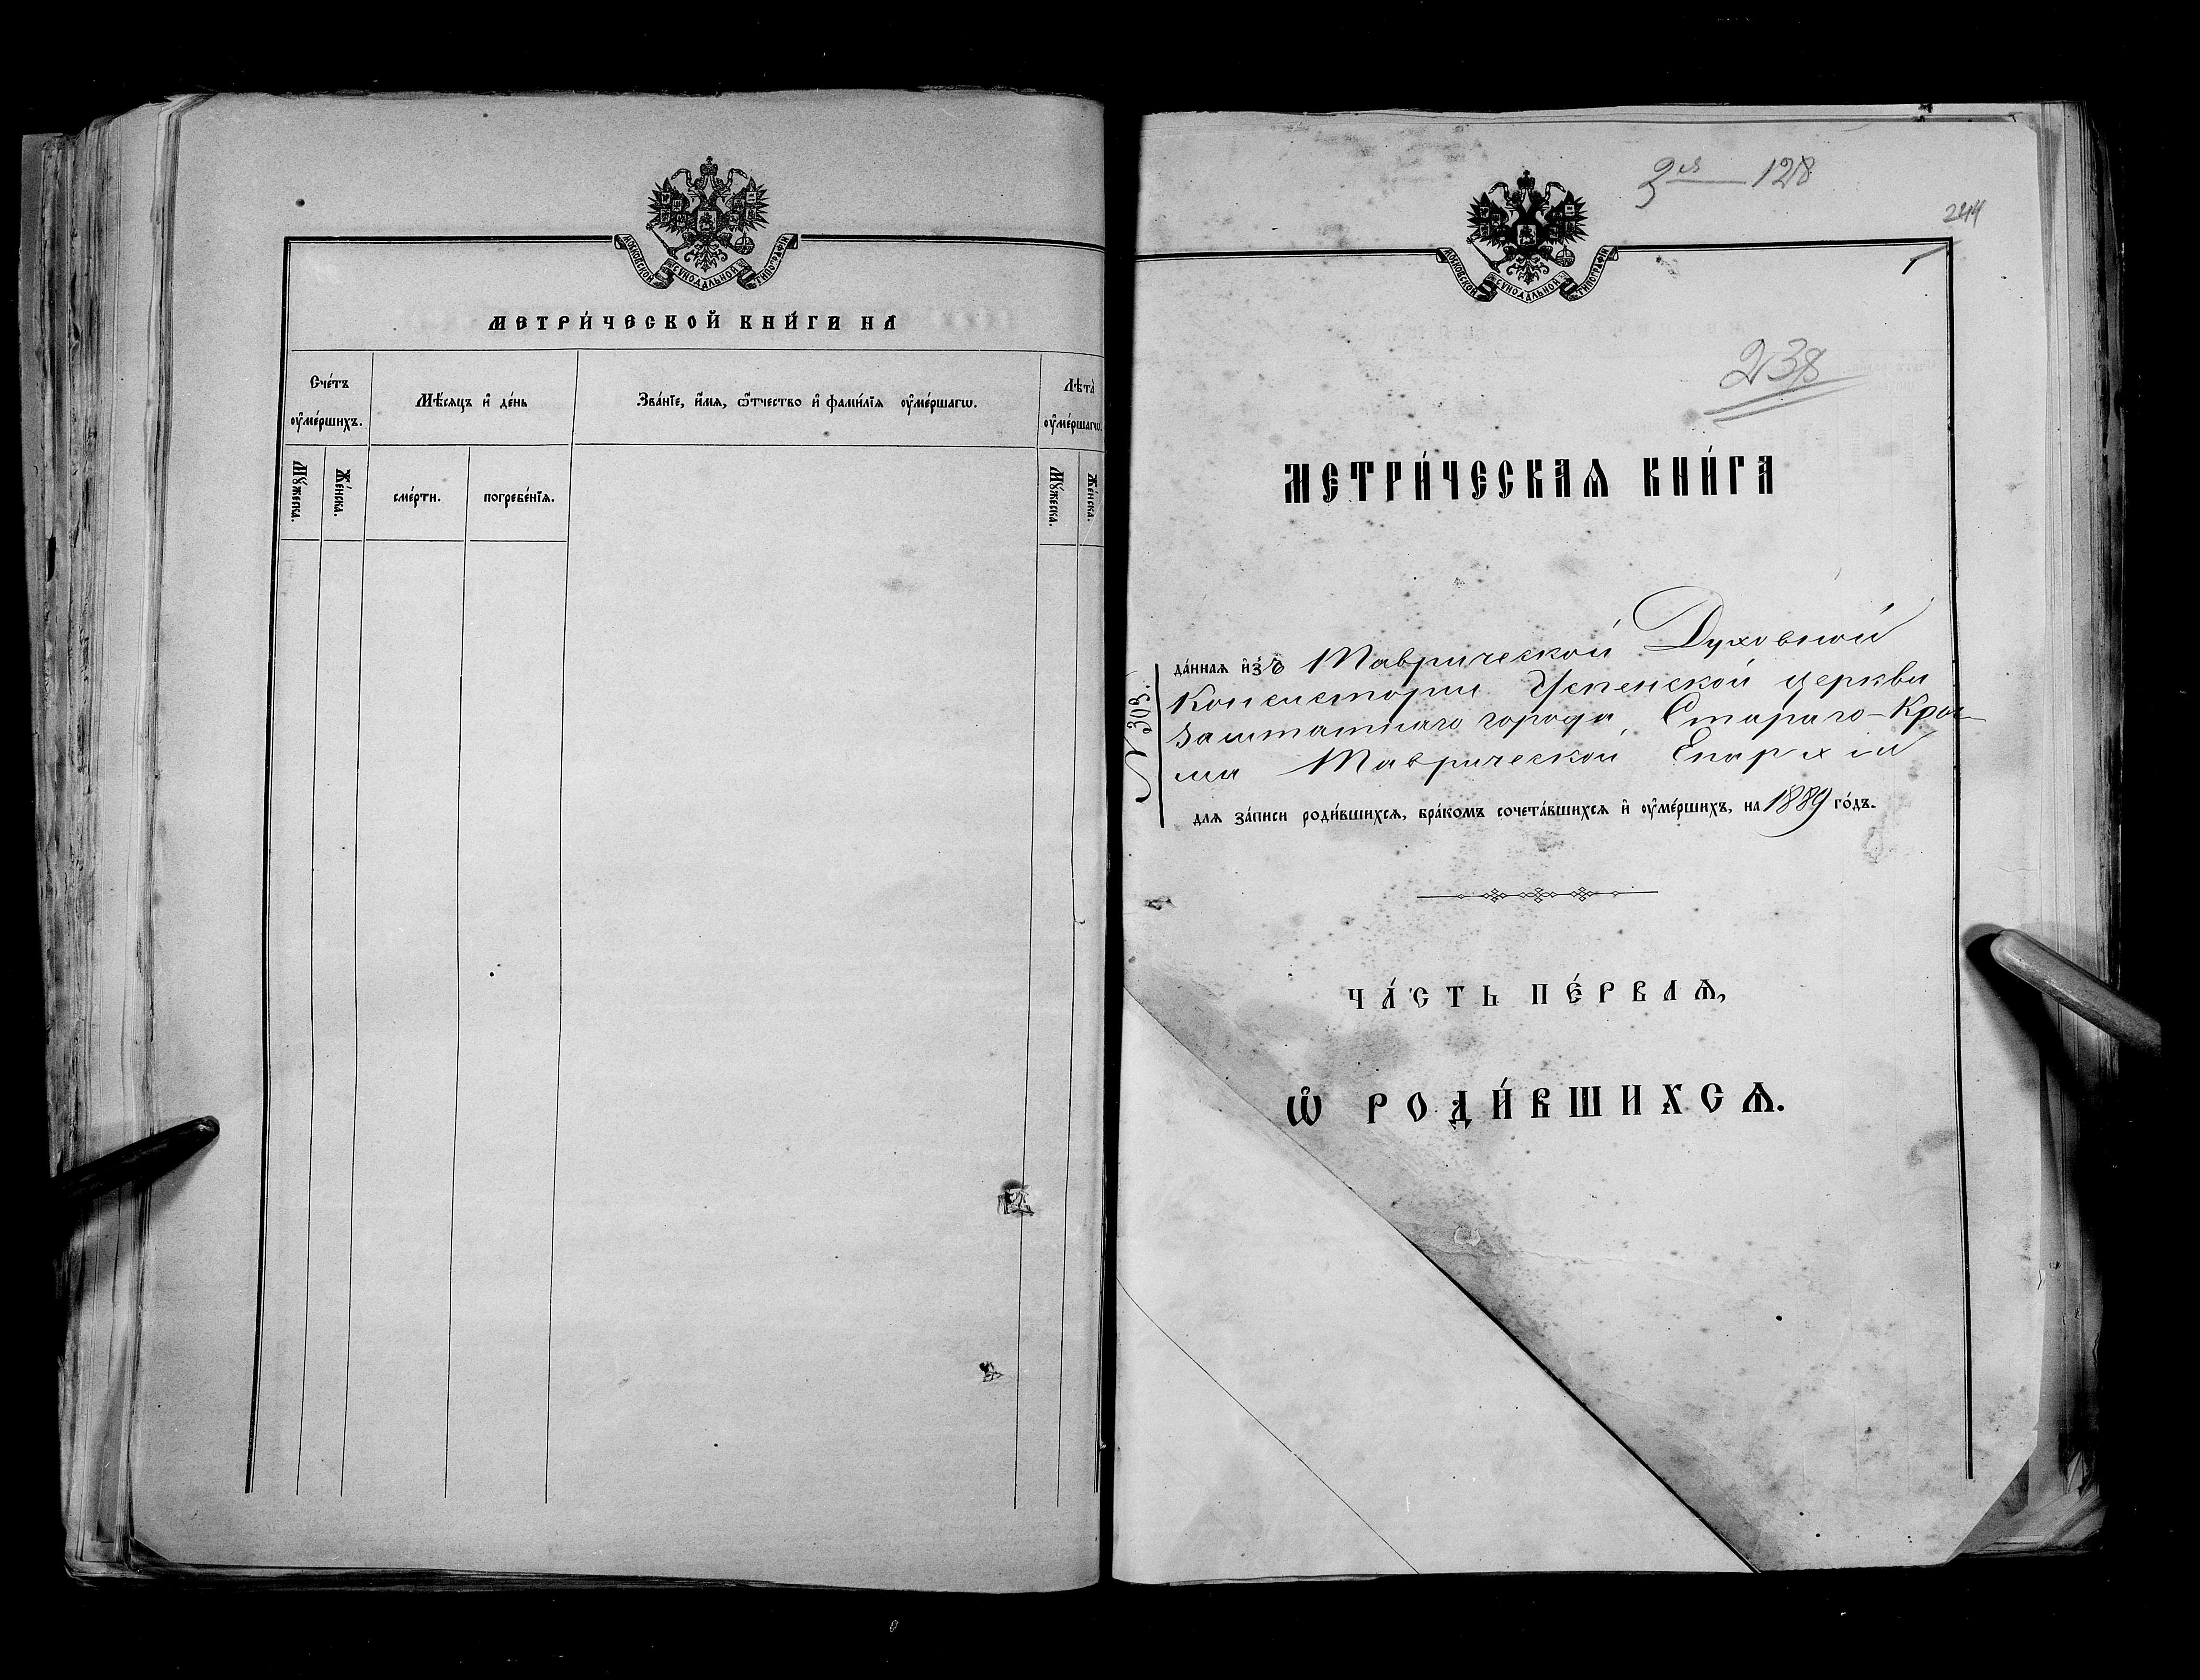 МОСКОВСКОЙ СѴНОДАЛЬНОЙ ТИПОГРАФІИ
МЕТРИ́ЧЕСКОЙ КНИ́ГИ НА
Сче́тъ ᲂу҆ме́ршихъ.
Мѣ́сяцъ и҆ де́нь
Зва́нїе, и҆́мѧ, ѻ҆́тчество и҆ фами́лїѧ ᲂу҆ме́ршагѡ.
Лѣта̀ ᲂу҆ме́ршагѡ.
Мꙋ́жеска.
Же́нска.
сме́рти.
погребе́нїѧ.
Мꙋ́жеска.
Же́нска.
128
244
МОСКОВСКОЙ СѴНОДАЛЬНОЙ ТИПОГРАФІИ
1
238
МЕТРИ́ЧЕСКАѦ КНИ́ГА
№ 303.
да́ннаѧ и҆зъ Таврической Духовной
Консисторіи Успенской церкви
Заштатнаго города Стараго-Кры-
ма Таврической Епархіи
длѧ за́писи роди́вшихсѧ, бра́комъ сочета́вшихсѧ и҆ ᲂу҆ме́ршихъ, на 1889 го́дъ.
ЧА́СТЬ ПЕ́РВАѦ,
Ѡ҆ РОДИ́ВШИХСѦ.